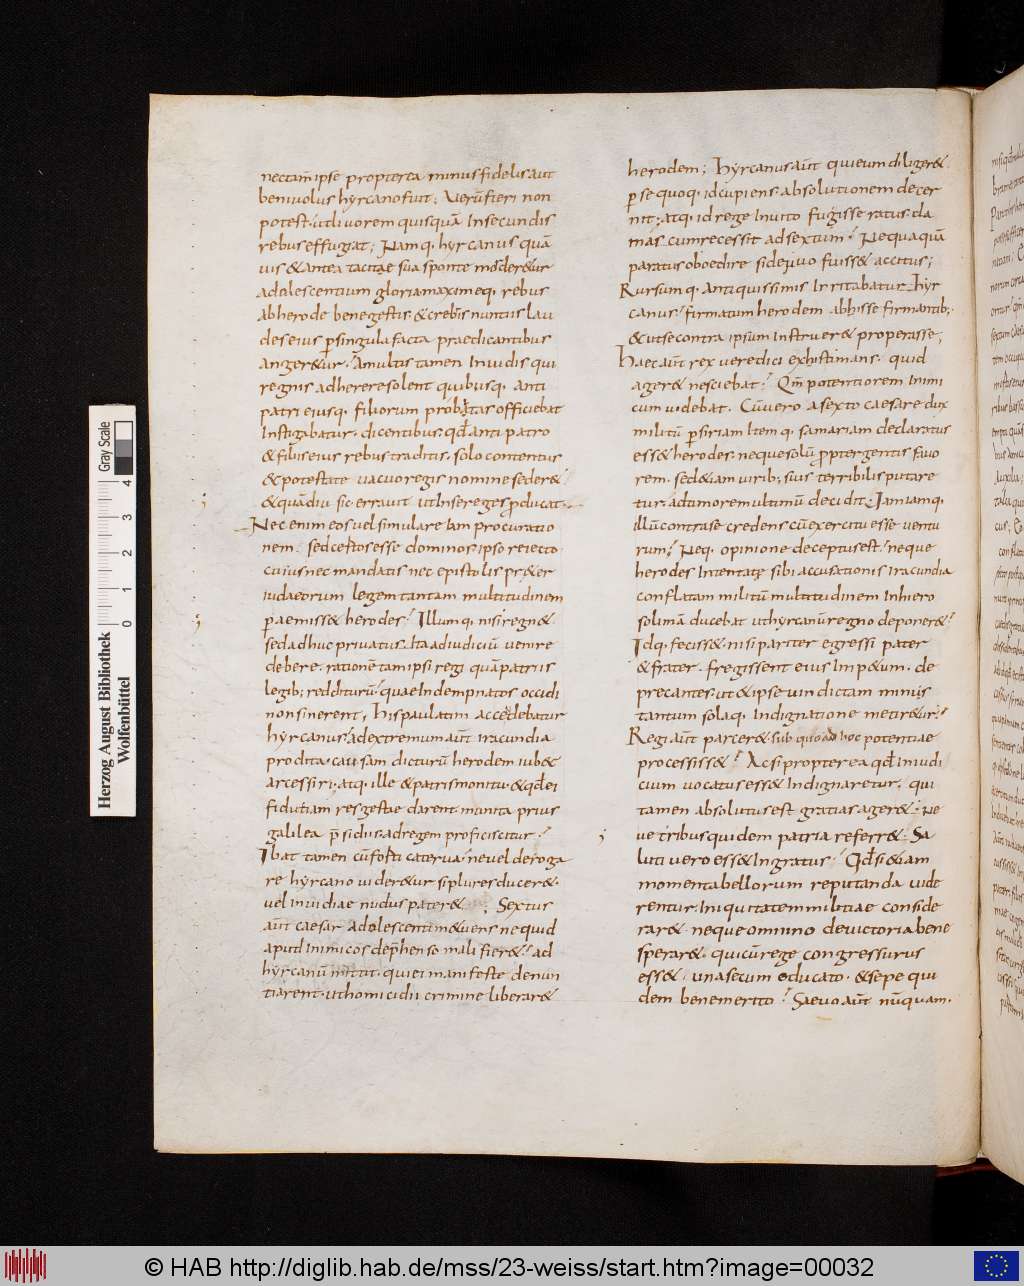 nec tam̄ ipse propterea minus fidelis aut
beniuolus hyrcano fuit; Verū fieri non
potest. ut liuorem quisquā In secundis
rebus effugiat; Namq. hyrcanus quā
uis & antea tacitae sua sponte morder&ur
adolescentium gloria maximeq. rebus
ab herode bene gestis. & crebris nuntiis lau
des eius p singula facta praedicantibus
anger&ur. A multis tamen Inuidis qui
regnis adherere solent quibusq. anti
patri eiusq. filiorum probitas officiebat
Instigabatur. dicentibus. qđ anti patro
& filiis eius rebus traditis. solo contentus
& potestate uacuo regis nomine seder&
& quādiu sic erraut ut hi se reges producat.
Nec enim eos uel simulare Iam procuratio
nem. sed certos esse dominos ipso reiecto.
cuius nec mandatis nec epistolis pr&er
iudaeorum legem tantam multitudinem
paemiss& herodes? Illumq. nisi regn&
sed adhuc priuatus. Ita ad iudiciū uenire
debere. rationē tam ipsi regi quā patriis
legib; redditurū. quae Indempnatos occidi
non sinerent; his paulatim accedebatur
hyrcanus. ad extremum aūt iracundia
prodita. causam dicturū herodem iub&
arcessiri. atq. ille & patris monitu & qđ ei
fidutiam res gestae darent. munita prius
galilea p̄sidiis. ad regem proficiscitur.
Ibat tamen cū forti caterua. ne uel deroga
re hyrcano uider&ur si plures ducer&.
uel inuidiae nudus pater&. Sextus
aūt caesar adolescentem&uens ne quid
apud inimicos dep̄henso mali fier&. ad
hyrcanū mittit. qui ei manifeste denun
tiarent. ut homicidii crimine liberar&
herodem; Hyrcanus aūt qui eum diliger&.
p se quoq. id cupiens. absolutionem decer
nit. atq. id rege Inuito fugisse ratus. da
mas cum recessit ad sextum. Nequaquā
paratus oboedire si denuo fuiss& accitus;
Rursumq. Antiquissimis Irritabatur hyr
canus. firmatum herodem abhisse firmantib;.
& ut se contra ipsum Instruer& properasse;
Haec aūt rex ueredici exhistimans. quid
ager& nesciebat. Qm̄ potentiorem Inimi
cum uidebat. Cū uero a sexto caesare dux
militū p siriam Itemq. samariam declaratus
ess& herodes. neque solū propter gentis fauo
rem. sed &iam uirib; suis terribilis putare
tur. ad timorem ultimū decidit. Iam iamq.
illū contra se credens cū exercitu esse uentu
rum. Neq. opinione deceptus est. neque
herodes Intentatae sibi accusationis iracundia
conflatam militū multitudinem In hiero
solimā ducebat ut hyrcanū regno deponer&.
Idq. feciss&. nisi pariter egressi pater
& frater. fregissent eius Imp&um. de
precantes. ut & ipse uindictam minis
tantum solaq. Indignatione metir&ur.
Regi aūt parcer& sub quo ad hoc potentiae
processiss&. Ac si propterea qđ In iudi
cium uocatus ess& Indignaretur. qui
tamen absolutus est gratias ager&. Ne
ue tribus quidem patria referr&. Sa
luti uero ess& Ingratus. Qđ si &iam
momenta bellorum reputanda uide
rentur. Iniquitatem militiae conside
rar&. neque omnino de uictoria bene
sperar&. qui cū rege congressurus
ess&. una secum educato. & sepe qui
dem bene merito. Saeuo aūt nūquam.
Herzog August Bibliothek
Wolfenbüttel
0 1 2 3 4
Gray Scale
© HAB http://diglib.hab.de/mss/23-weiss/start.htm?image=00032